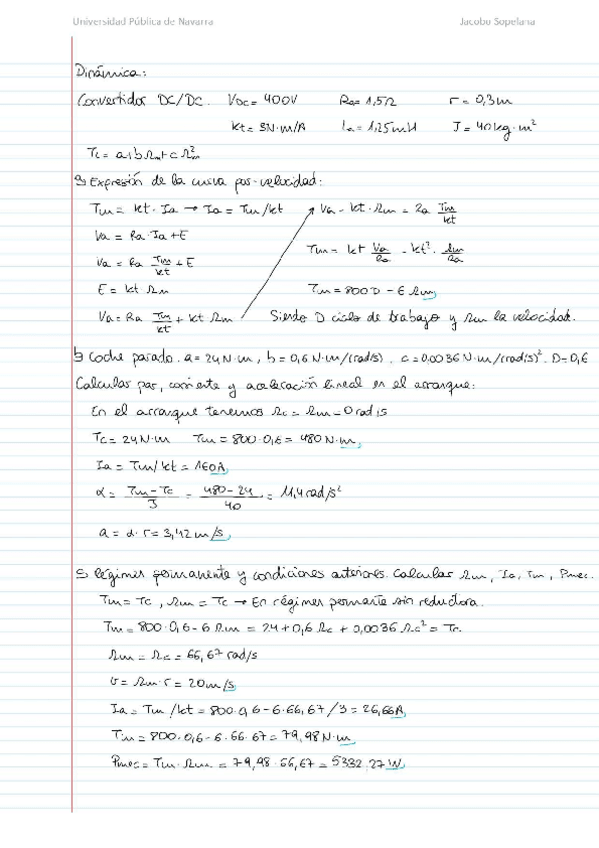 Universidad Pública de Navarra Jacobo Sopelana
Dinámica:
Convertidor DC/DC. VDC = 400V Ra = 1,5Ω r = 0,3m
kt = 3N·m/A La = 1,25mH J = 40kg·m²
Tc = a+bΩm+cΩm²
a) Expresión de la curva par-velocidad:
Tm = kt·Ia → Ia = Tm/kt Va - kt·Ωm = Ra Tm/kt
Va = Ra·Ia+E
Va = Ra Tm/kt + E Tm = kt Va/Ra - kt²·Ωm/Ra
E = kt·Ωm Tm = 800D - 6Ωm
Va = Ra Tm/kt + kt·Ωm Siendo D ciclo de trabajo y Ωm la velocidad.
b) Coche parado. a = 24N·m, b = 0,6N·m/(rad/s), c = 0,0036N·m/(rad/s)². D=0,6
Calcular par, corriente y aceleración lineal en el arranque:
En el arranque tenemos Ωc = Ωm = 0rad/s
Tc = 24N·m Tm = 800·0,6 = 480N·m
Ia = Tm/kt = 160A
α = Tm-Tc/J = 480-24/40 = 11,4rad/s²
a = α·r = 3,42m/s
c) Régimen permanente y condiciones anteriores. Calcular Ωm, Ia, Tm, Pmec.
Tm = Tc, Ωm = Tc → En régimen permante sin reductora.
Tm = 800·0,6 - 6Ωm = 24 + 0,6Ωc + 0,0036Ωc² = Tc
Ωm = Ωc = 66,67rad/s
v = Ωm·r = 20m/s
Ia = Tm/kt = 800·0,6-6·66,67/3 = 26,66A
Tm = 800·0,6-6·66·67 = 79,98N·m
Pmec = Tm·Ωm = 79,98·66,67 = 5332,27W